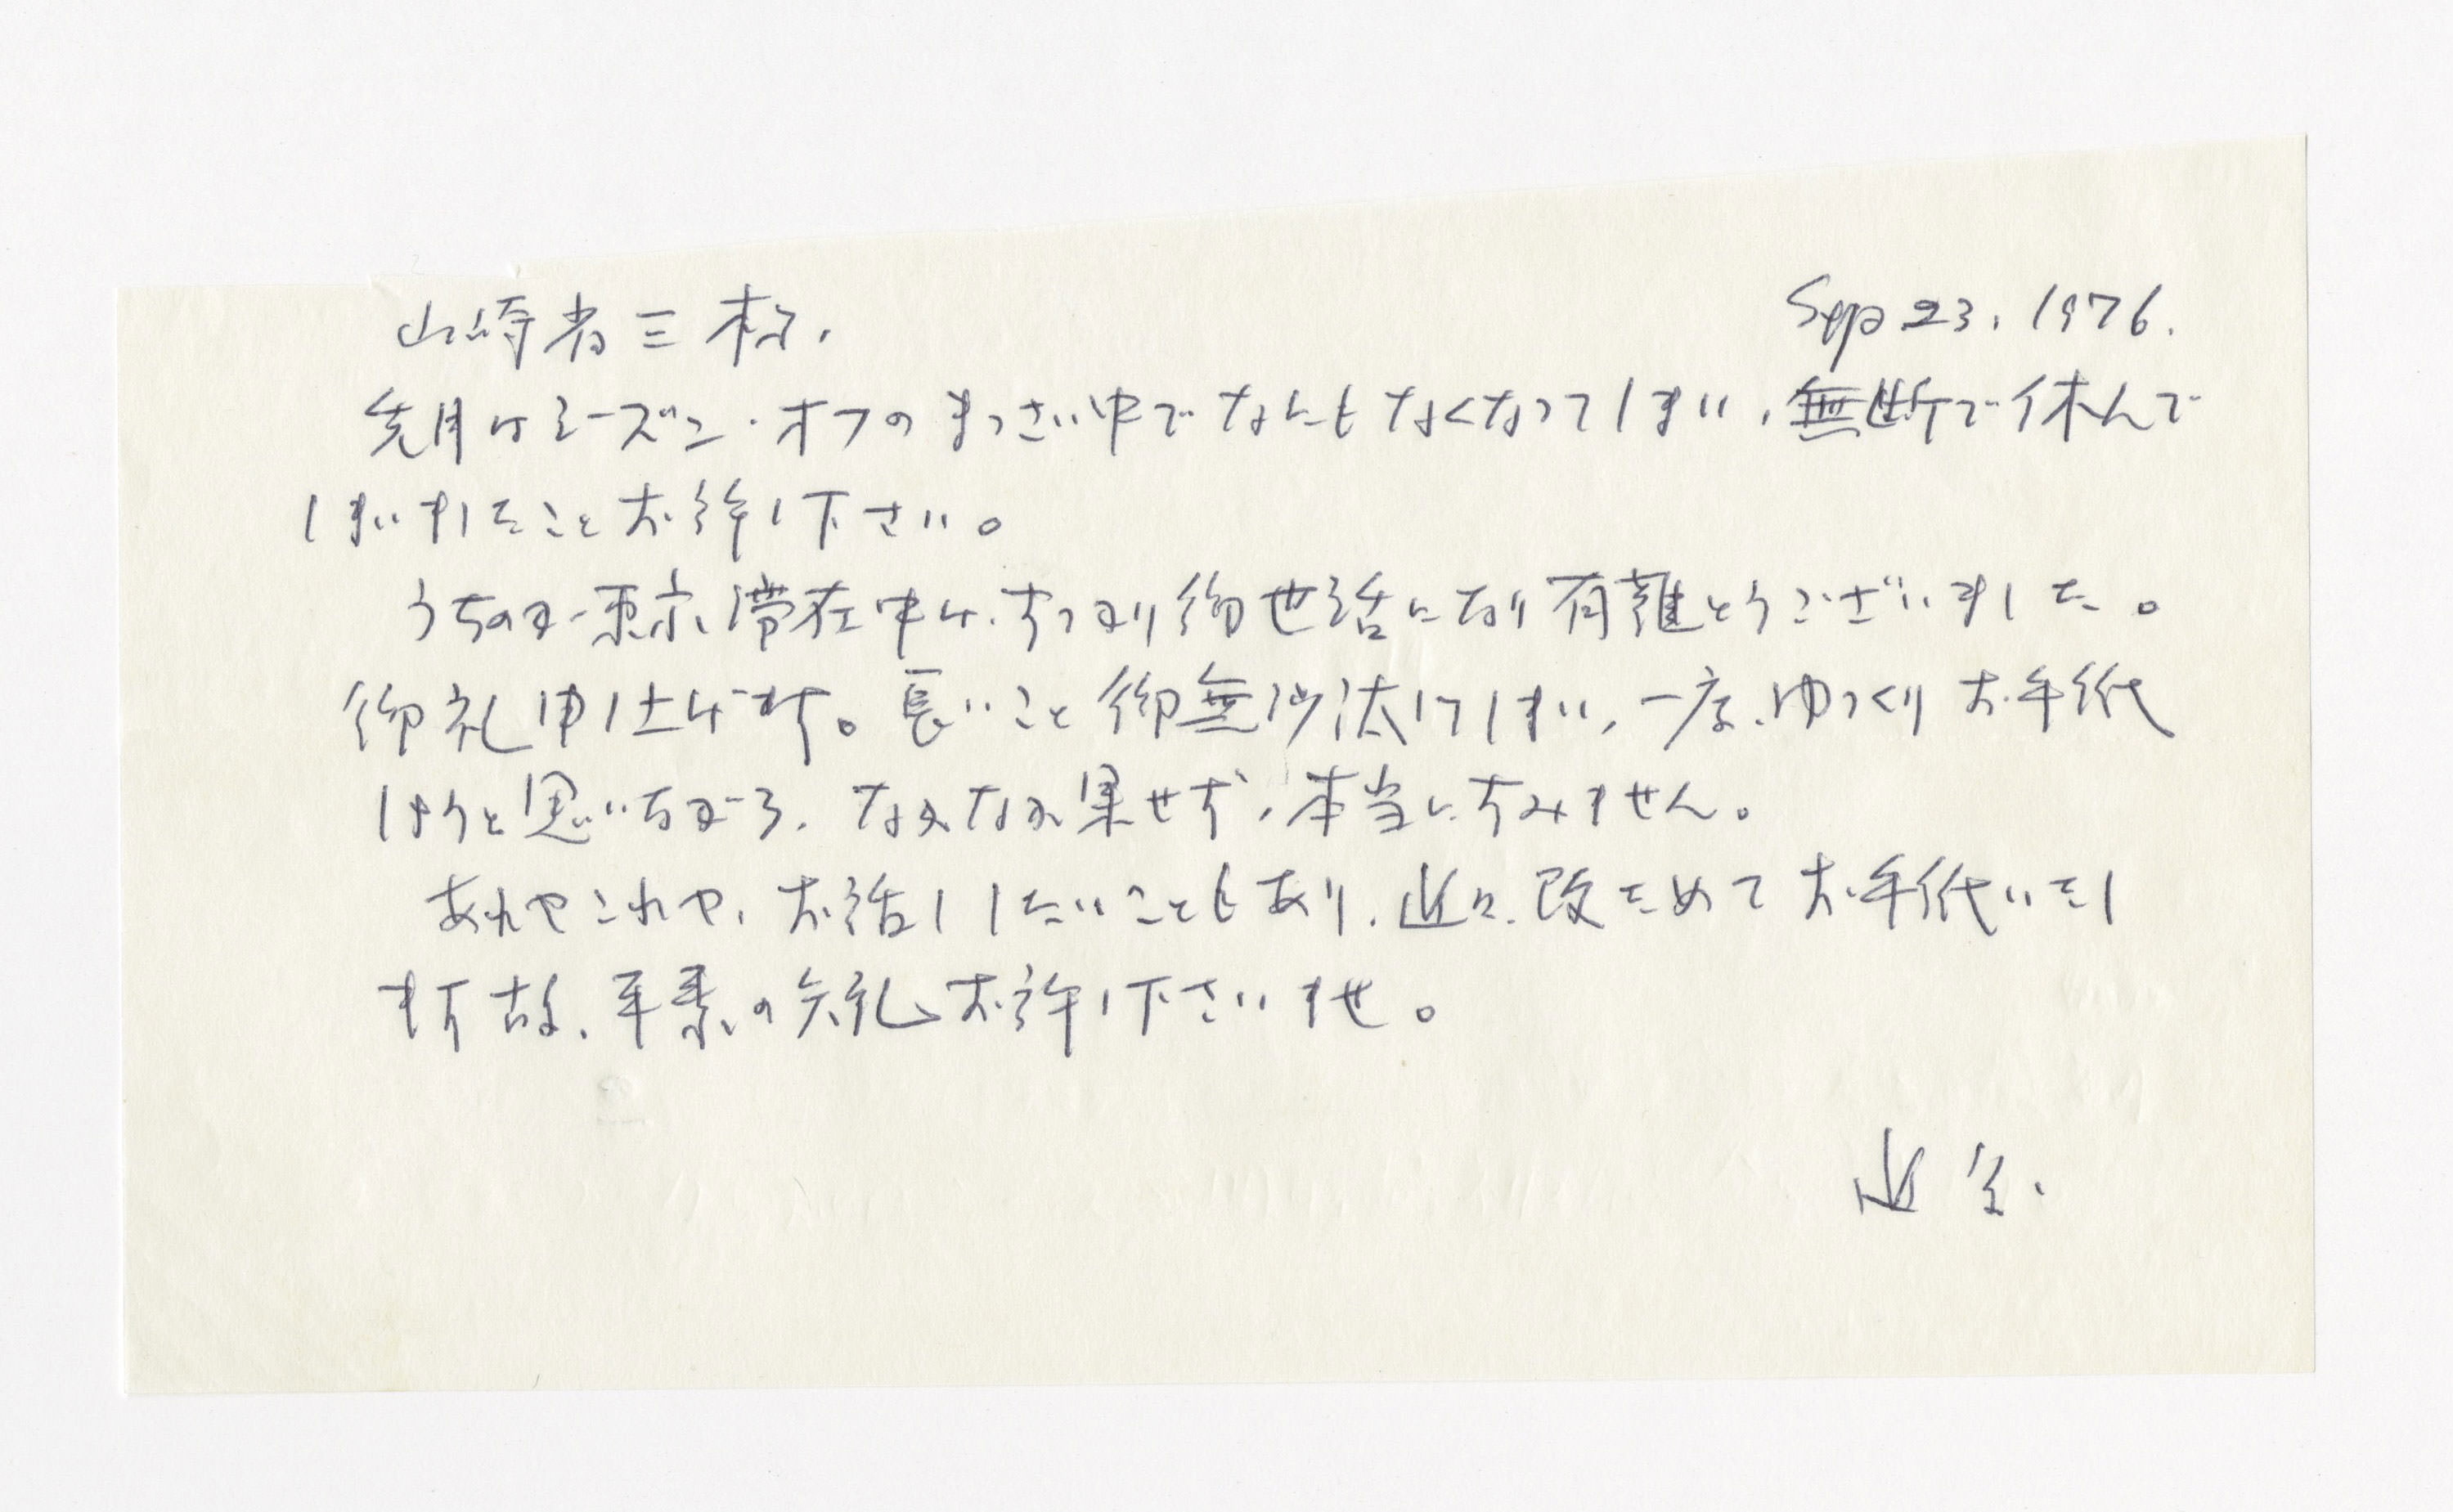 山崎省三様、
Sep 23, 1976.
先月はシーズン・オフのまっさい中でなにもなくなってしまい、無断で休んで
しまいましたことお許し下さい。
うちのが東京滞在中は、すっかり御世話になり有難とうございました。
御礼申し上げます。長いこと御無沙汰してしまい、一度、ゆっくりお手紙
しようと思いながら、なかなか果せず、本当にすみません。
あれやこれや、お話ししたいこともあり、近々、改ためてお手紙いたし
ます故、平素の失礼お許し下さいませ。